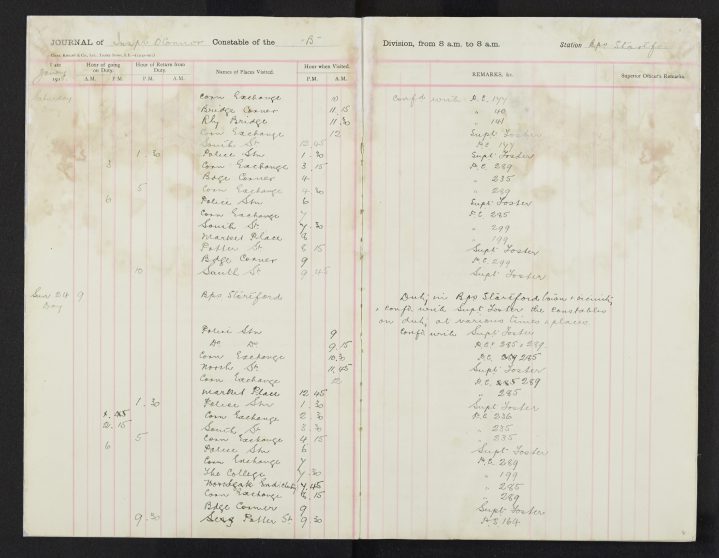 JOURNAL of Inspr O'Connor Constable of the "B" Division, from 8 a.m. to 8 a.m. Station Bps Stortford
Hour of going on Duty. A.M. P.M. Hour of Return from Duty. A.M. P.M. Names of Places Visited. Hour when Visited. P.M. A.M. REMARKS, &c. Superior Officer's Remarks.
Saturday Corn Exchange 10 Conf'd with P.C. 177
Bridge Corner 11.15 " 40
Rly Bridge 11.30 "
Corn Exchange 12 Supt Foster
South St 12.45 P.C. 147
1.30 Police Stn 1.30 Supt Foster
3 Corn Exchange 3.15 P.C. 289
Bdge Corner 4 " 235
5 Corn Exchange 4.30 " 289
6 Police Stn 6 Supt Foster
Corn Exchange 7 P.C. 285
South St 7.30 " 299
Market Place 8 " 199
Potter St 8.15 Supt Foster
Bdge Corner 9 P.C. 299
10 South St 9.45 Supt Foster
Sun 24 9 Bps Stortford Duty in Bps Stortford town & vicinity
day & conf'd with Supt Foster & the Constables
on duty at various times & places
Police Stn 9 Conf'd with Supt Foster
Do Do 9.15 P.C.s 285 & 289
Corn Exchange 10.30 P.C. 285
North St 11.45 Supt Foster
Corn Exchange 12 P.C. 289
Market Place 12.45 " 285
1.30 Police Stn 1.30 Supt Foster
Corn Exchange 2.30 P.C. 236
2.15 South St 3.30 " 235
5 Corn Exchange 4.15 " 235
6 Police Stn 6 Supt Foster
Corn Exchange 7 P.C. 289
The College 7.30 " 199
Woodgate End 7.45 " 285
Corn Exchange 8.15 " 289
Bdge Corner 9 Supt Foster
9.30 Potter St 9.30 P.S 164